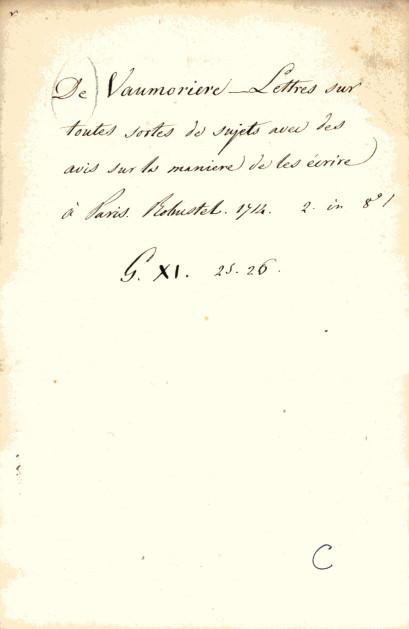 (De) Vaumoriere _ Lettres sur
toutes sortes de sujets avec des
avis sur la maniere de les écrire)
à Paris. Robustel. 1714. 2. in 8º /
G. XI. 25. 26.
C